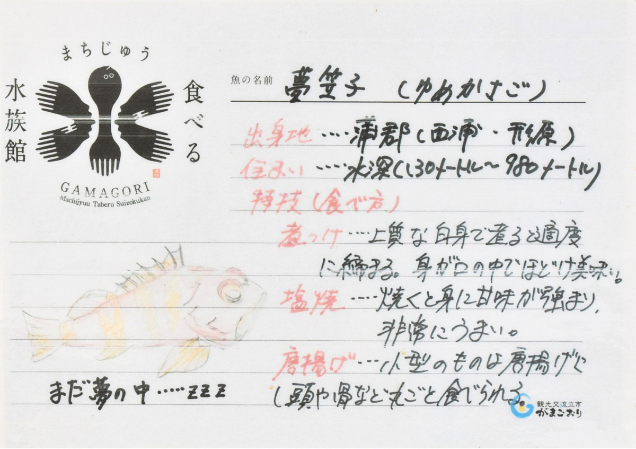 まちじゅう
食べる
水族館
GAMAGORI
Machijyuu Taberu Suizokukan
魚の名前 夢笠子 (ゆめかさご)
出身地 ‥‥蒲郡(西浦・形原)
住まい ‥‥水深(130メートル〜980メートル)
特技(食べ方)
煮つけ ‥‥上質な白身で煮ると適度
に締まる。身が口の中でほどけ美味い。
塩焼 ‥‥焼くと身に甘味が強まり、
非常にうまい。
唐揚げ ‥‥小型のものは唐揚げに
し頭や骨など丸ごと食べられる。
まだ夢の中‥‥‥zzz
観光交流立市
がまごおり